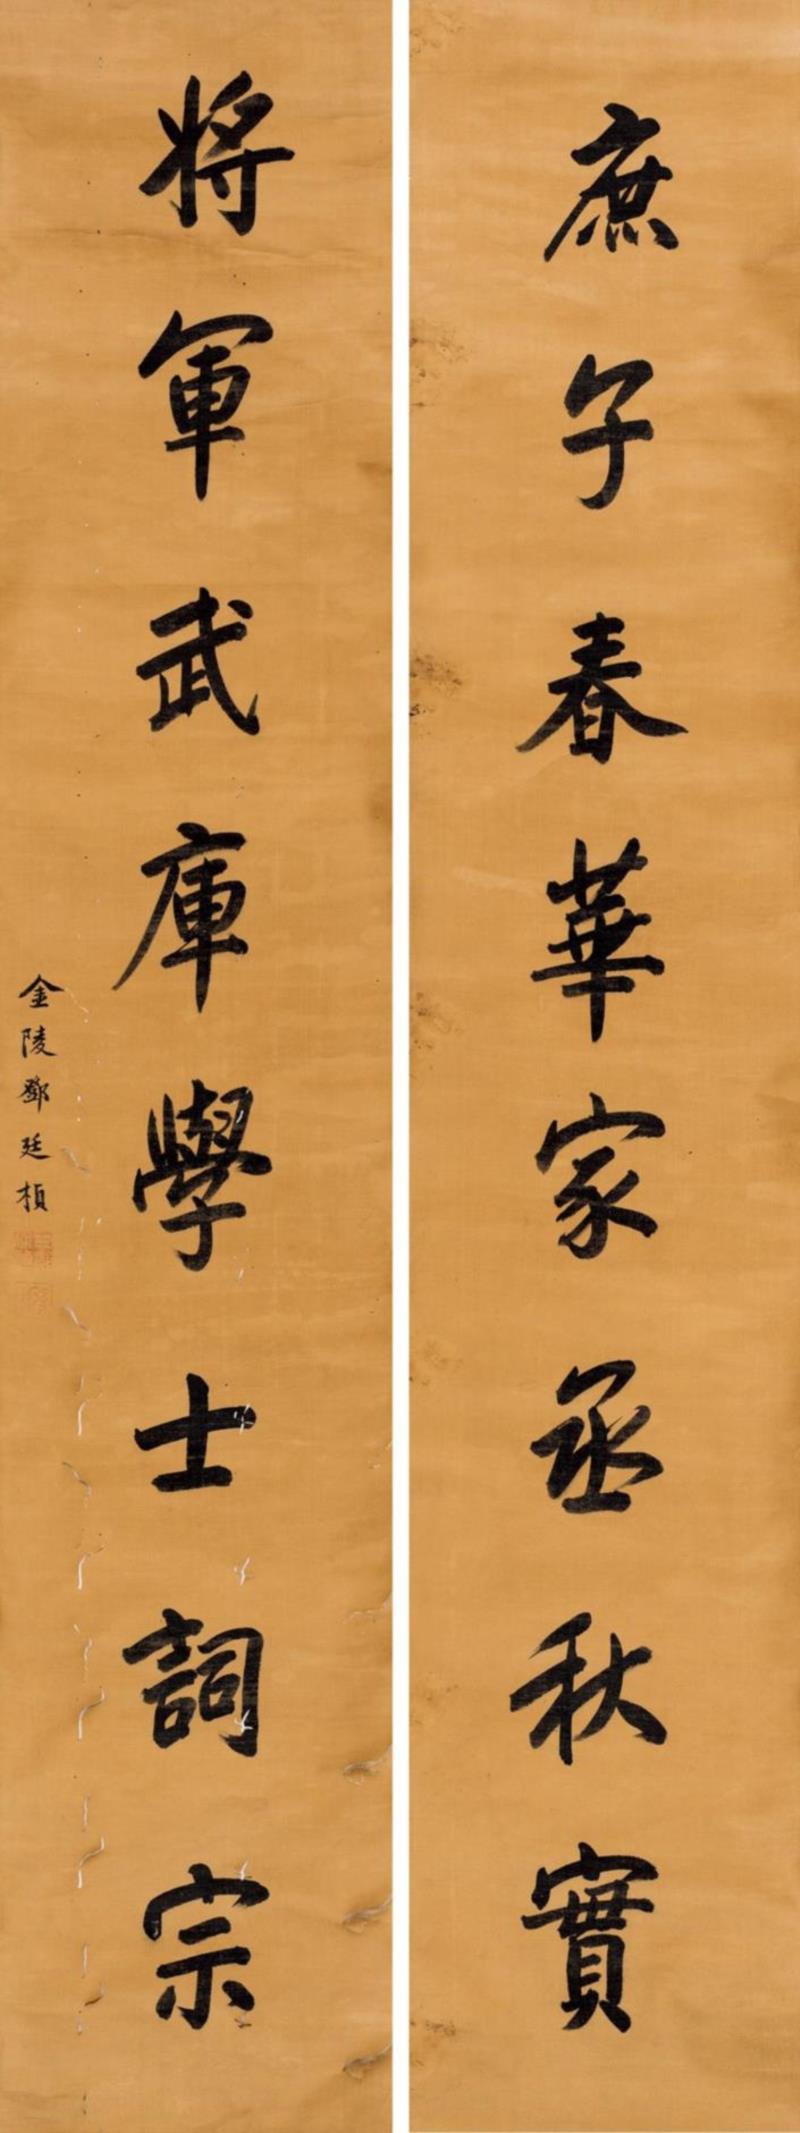 庶子春華家丞秋實
將軍武庫學士詞宗
金陵鄧廷楨